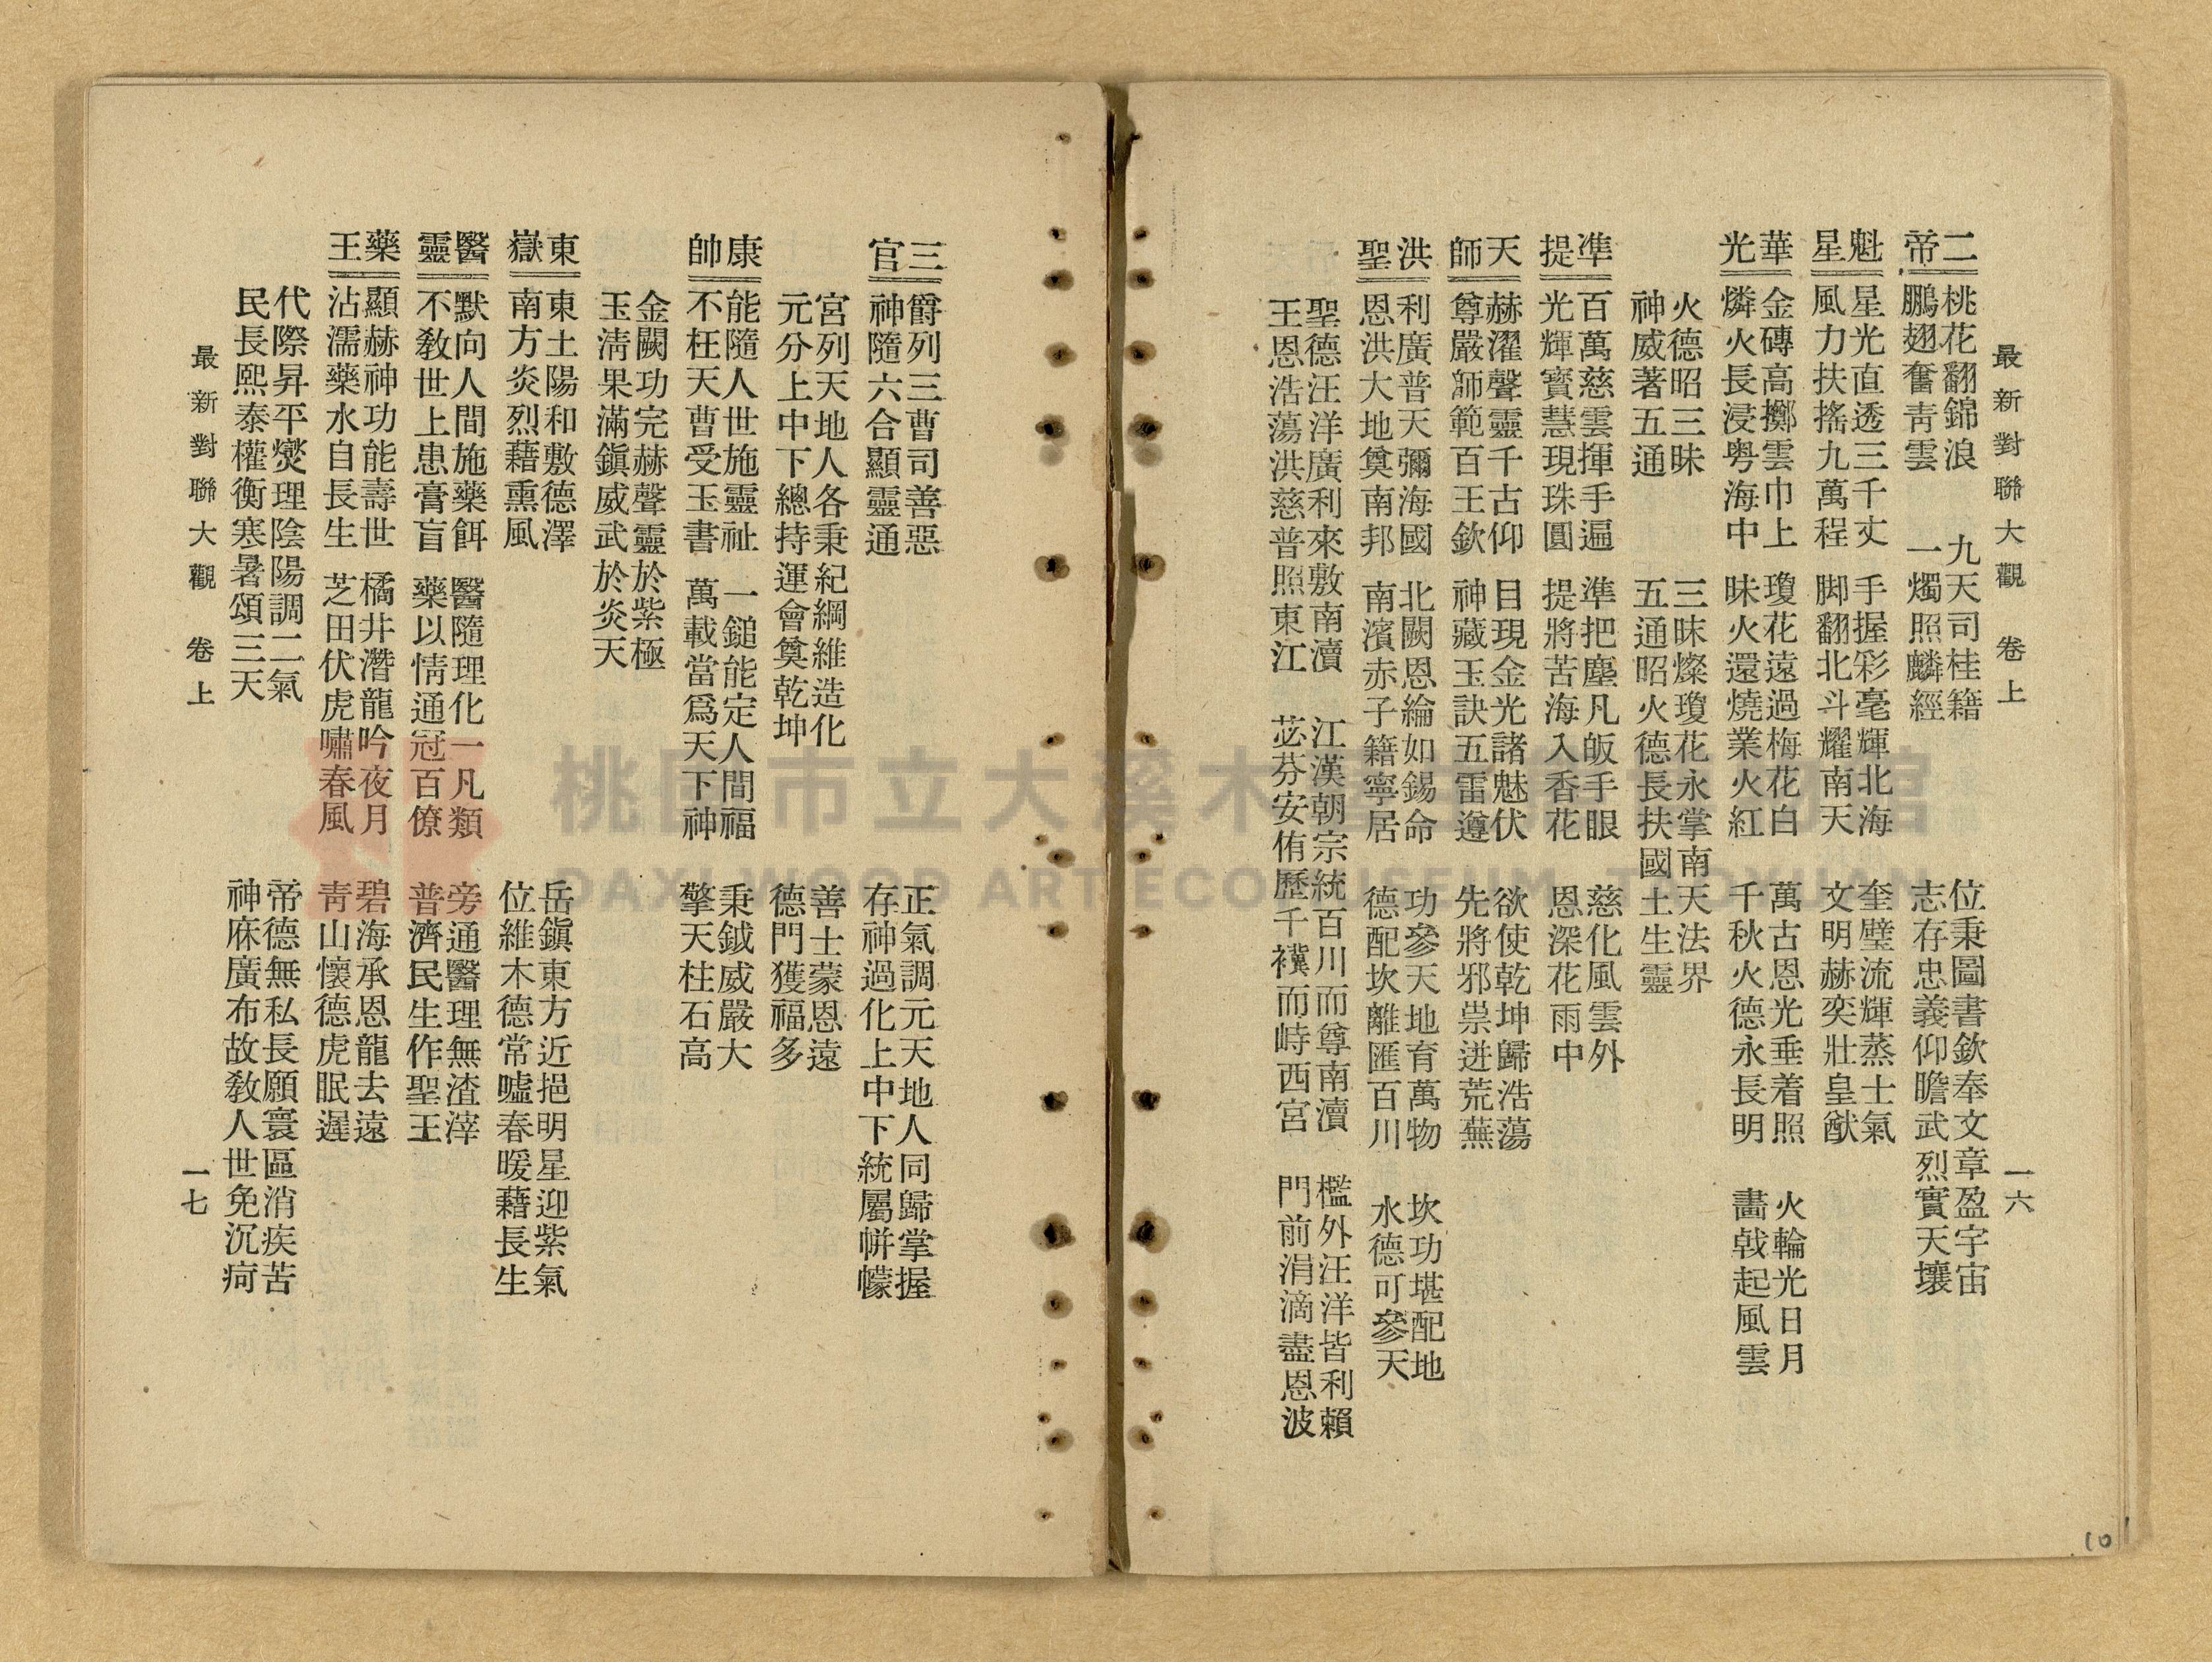 最新對聯大觀 卷上 一六
二帝
桃花翻錦浪 九天司桂籍 位秉圖書欽奉文章盈宇宙
鵬翅奮靑雲 一燭照麟經 志存忠義仰瞻武烈實天壤
魁星
星光直透三千丈 手握彩毫輝北海 奎璧流輝蒸士氣
風力扶搖九萬程 脚翻北斗耀南天 文明赫奕壯皇猷
華光
金磚高擲雲巾上 瓊花遠過梅花白 萬古恩光垂着照 火輪光日月
燐火長浸粤海中 昧火還燒業火紅 千秋火德永長明 畵戟起風雲
火德昭三昧 三昧燦瓊花永掌南天法界
神威著五通 五通昭火德長扶國土生靈
準提
百萬慈雲揮手遍 準把塵凡皈手眼 慈化風雲外
光輝寳慧現珠圓 提將苦海入香花 恩深花雨中
天師
赫濯聲靈千古仰 目現金光諸魅伏 欲使乾坤歸浩蕩
尊嚴師範百王欽 神藏玉訣五雷遵 先將邪祟迸荒蕪
洪聖
利廣普天彌海國 北闕恩綸如錫命 功參天地育萬物 坎功堪配地
恩洪大地奠南邦 南濱赤子籍寧居 德配坎離匯百川 水德可參天
聖德汪洋廣利來敷南瀆 江漢朝宗統百川而尊南瀆 檻外汪洋皆利賴
王恩浩蕩洪慈普照東江 苾芬安侑歷千禩而峙西宮 門前涓滴盡恩波
三官
爵列三曹司善惡 正氣調元天地人同歸掌握
神隨六合顯靈通 存神過化上中下統屬帡幪
宮列天地人各秉紀綱維造化 善士蒙恩遠
元分上中下總持運會奠乾坤 德門獲福多
康帥
能隨人世施靈祉 一鎚能定人間福 秉鉞威嚴大
不枉天曹受玉書 萬載當爲天下神 擎天柱石高
金闕功完赫聲靈於紫極
玉淸果滿鎭威武於炎天
東嶽
東土陽和敷德澤 岳鎭東方近挹明星迎紫氣
南方炎烈藉熏風 位維木德常噓春暖藉長生
醫靈
默向人間施藥餌 醫隨理化一凡類 旁通醫理無渣滓
不敎世上患膏肓 藥以情通冠百僚 普濟民生作聖王
藥王
顯赫神功能壽世 橘井潛龍吟夜月 碧海承恩龍去遠
沾濡藥水自長生 芝田伏虎嘯春風 靑山懷德虎眠遲
代際昇平燮理陰陽調二氣 帝德無私長願寰區消疾苦
民長熙泰權衡寒暑頌三天 神庥廣布故敎人世免沉疴
最新對聯大觀 卷上 一七
10
桃園市立大溪木藝生態博物館
DAXI WOOD ART ECOMUSEUM, TAOYUAN